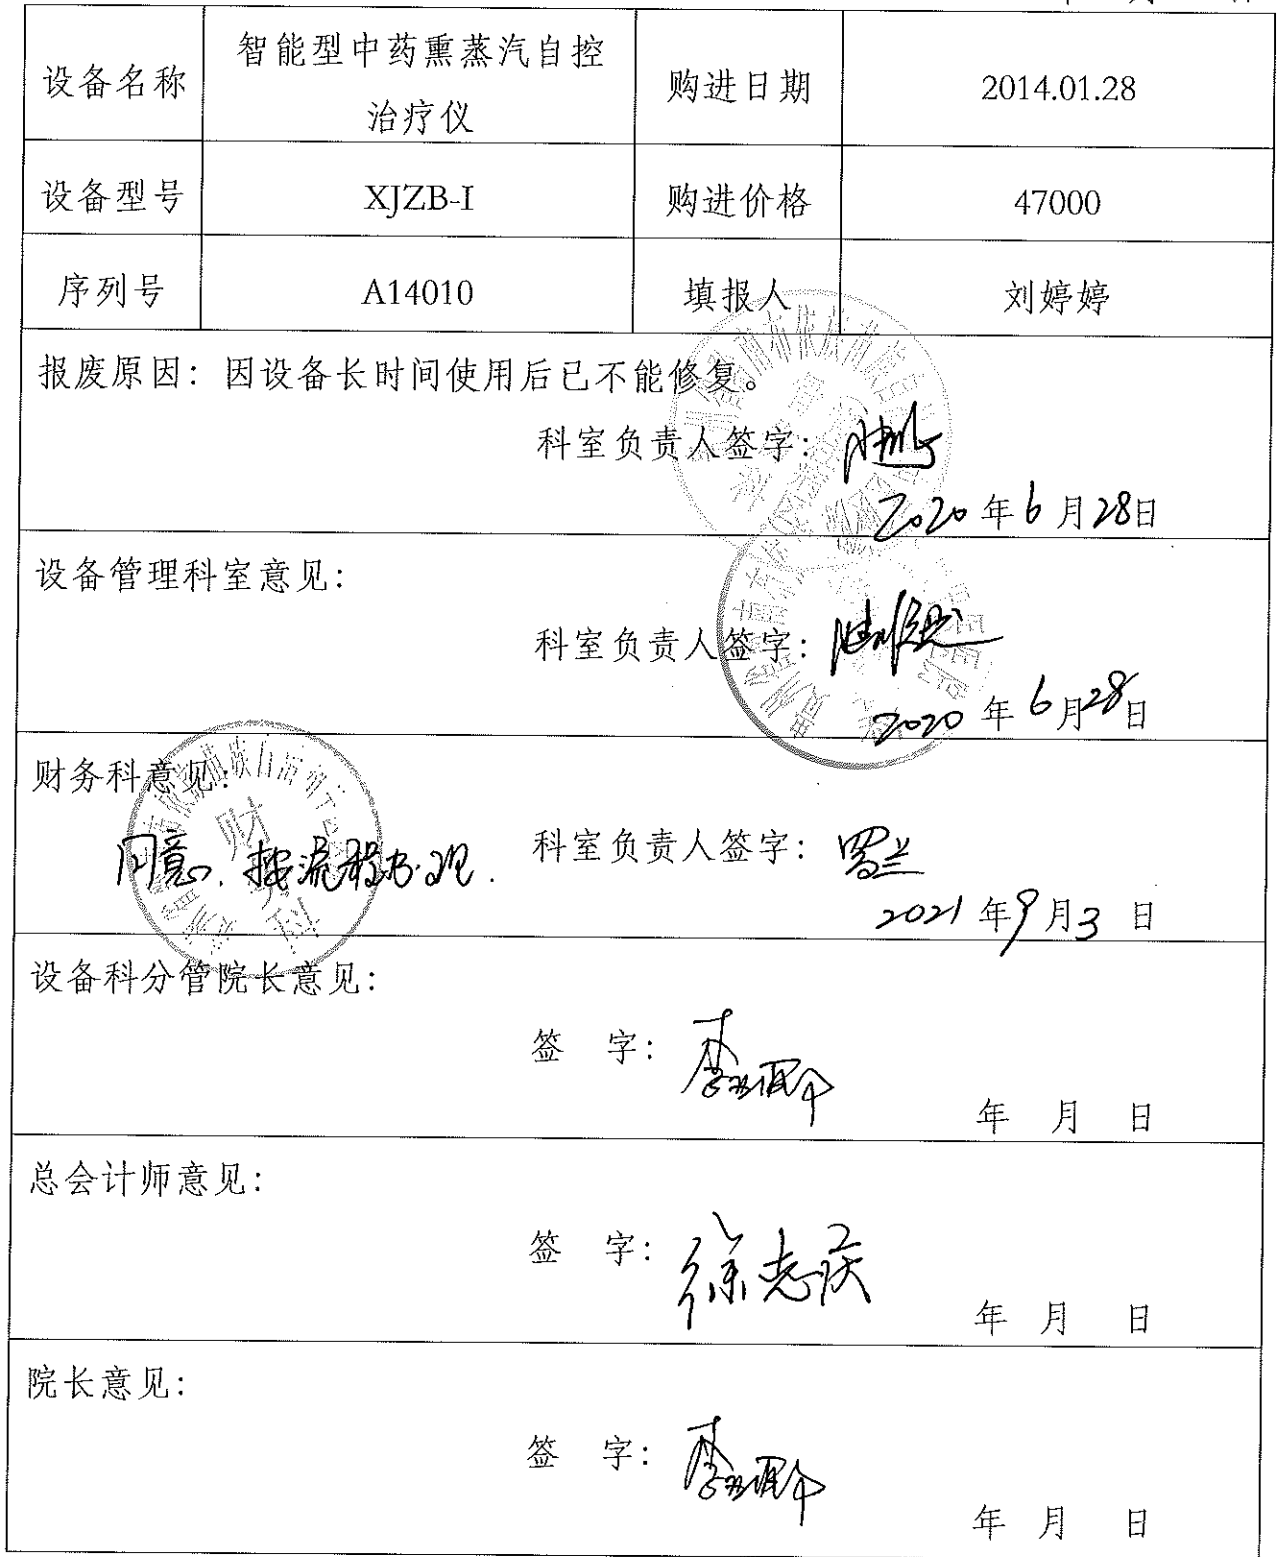 设备名称 智能型中药熏蒸汽自控治疗仪 购进日期 2014.01.28
设备型号 XJZB-I 购进价格 47000
序列号 A14010 填报人 刘婷婷
报废原因：因设备长时间使用后已不能修复。
科室负责人签字：
2020年6月28日
设备管理科室意见：
科室负责人签字：
2020年6月28日
财务科意见：
同意，按流程办理.
科室负责人签字：罗兰
2021年9月3日
财务科
设备科分管院长意见：
签 字：
年 月 日
总会计师意见：
签 字：徐志庆
年 月 日
院长意见：
签 字：
年 月 日